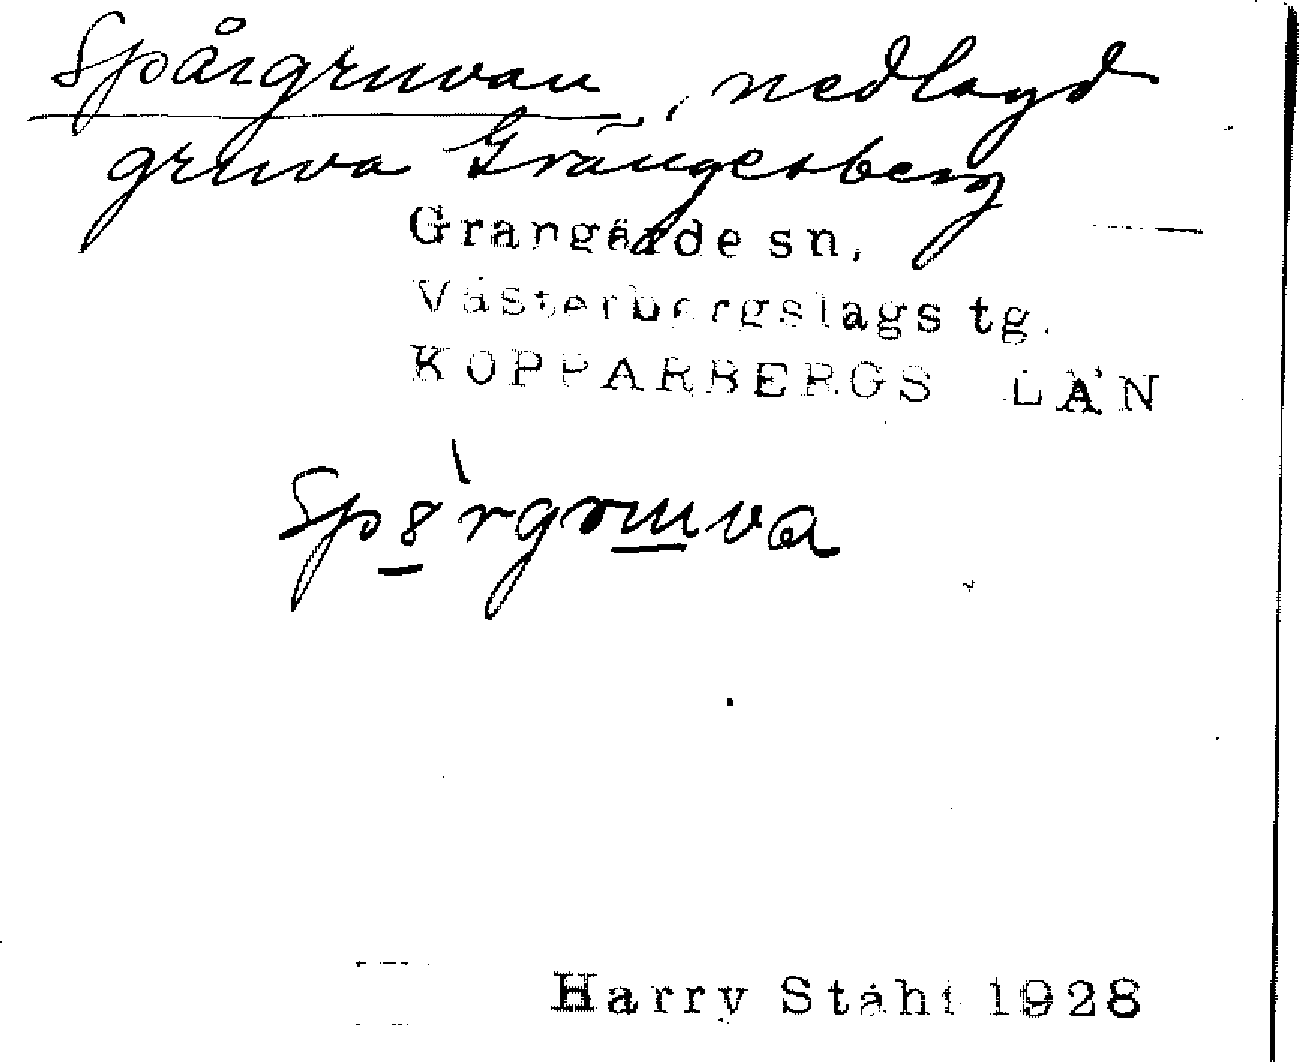 Spårgruvan, nedlagd
gruva Grängesberg
Grangärde sn.
Västerbergslags tg.
KOPPARBERGS LÄN
Sp8̀rgruva
Harry Ståhl 1928